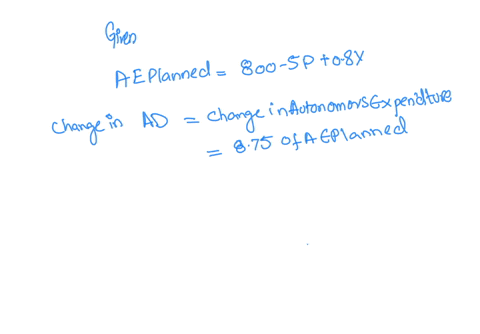 Given
AEPlanned = 800-5P+0.8Y
Change in AD = change in Autonomous Expenditure
= 8.75 of AEPlanned